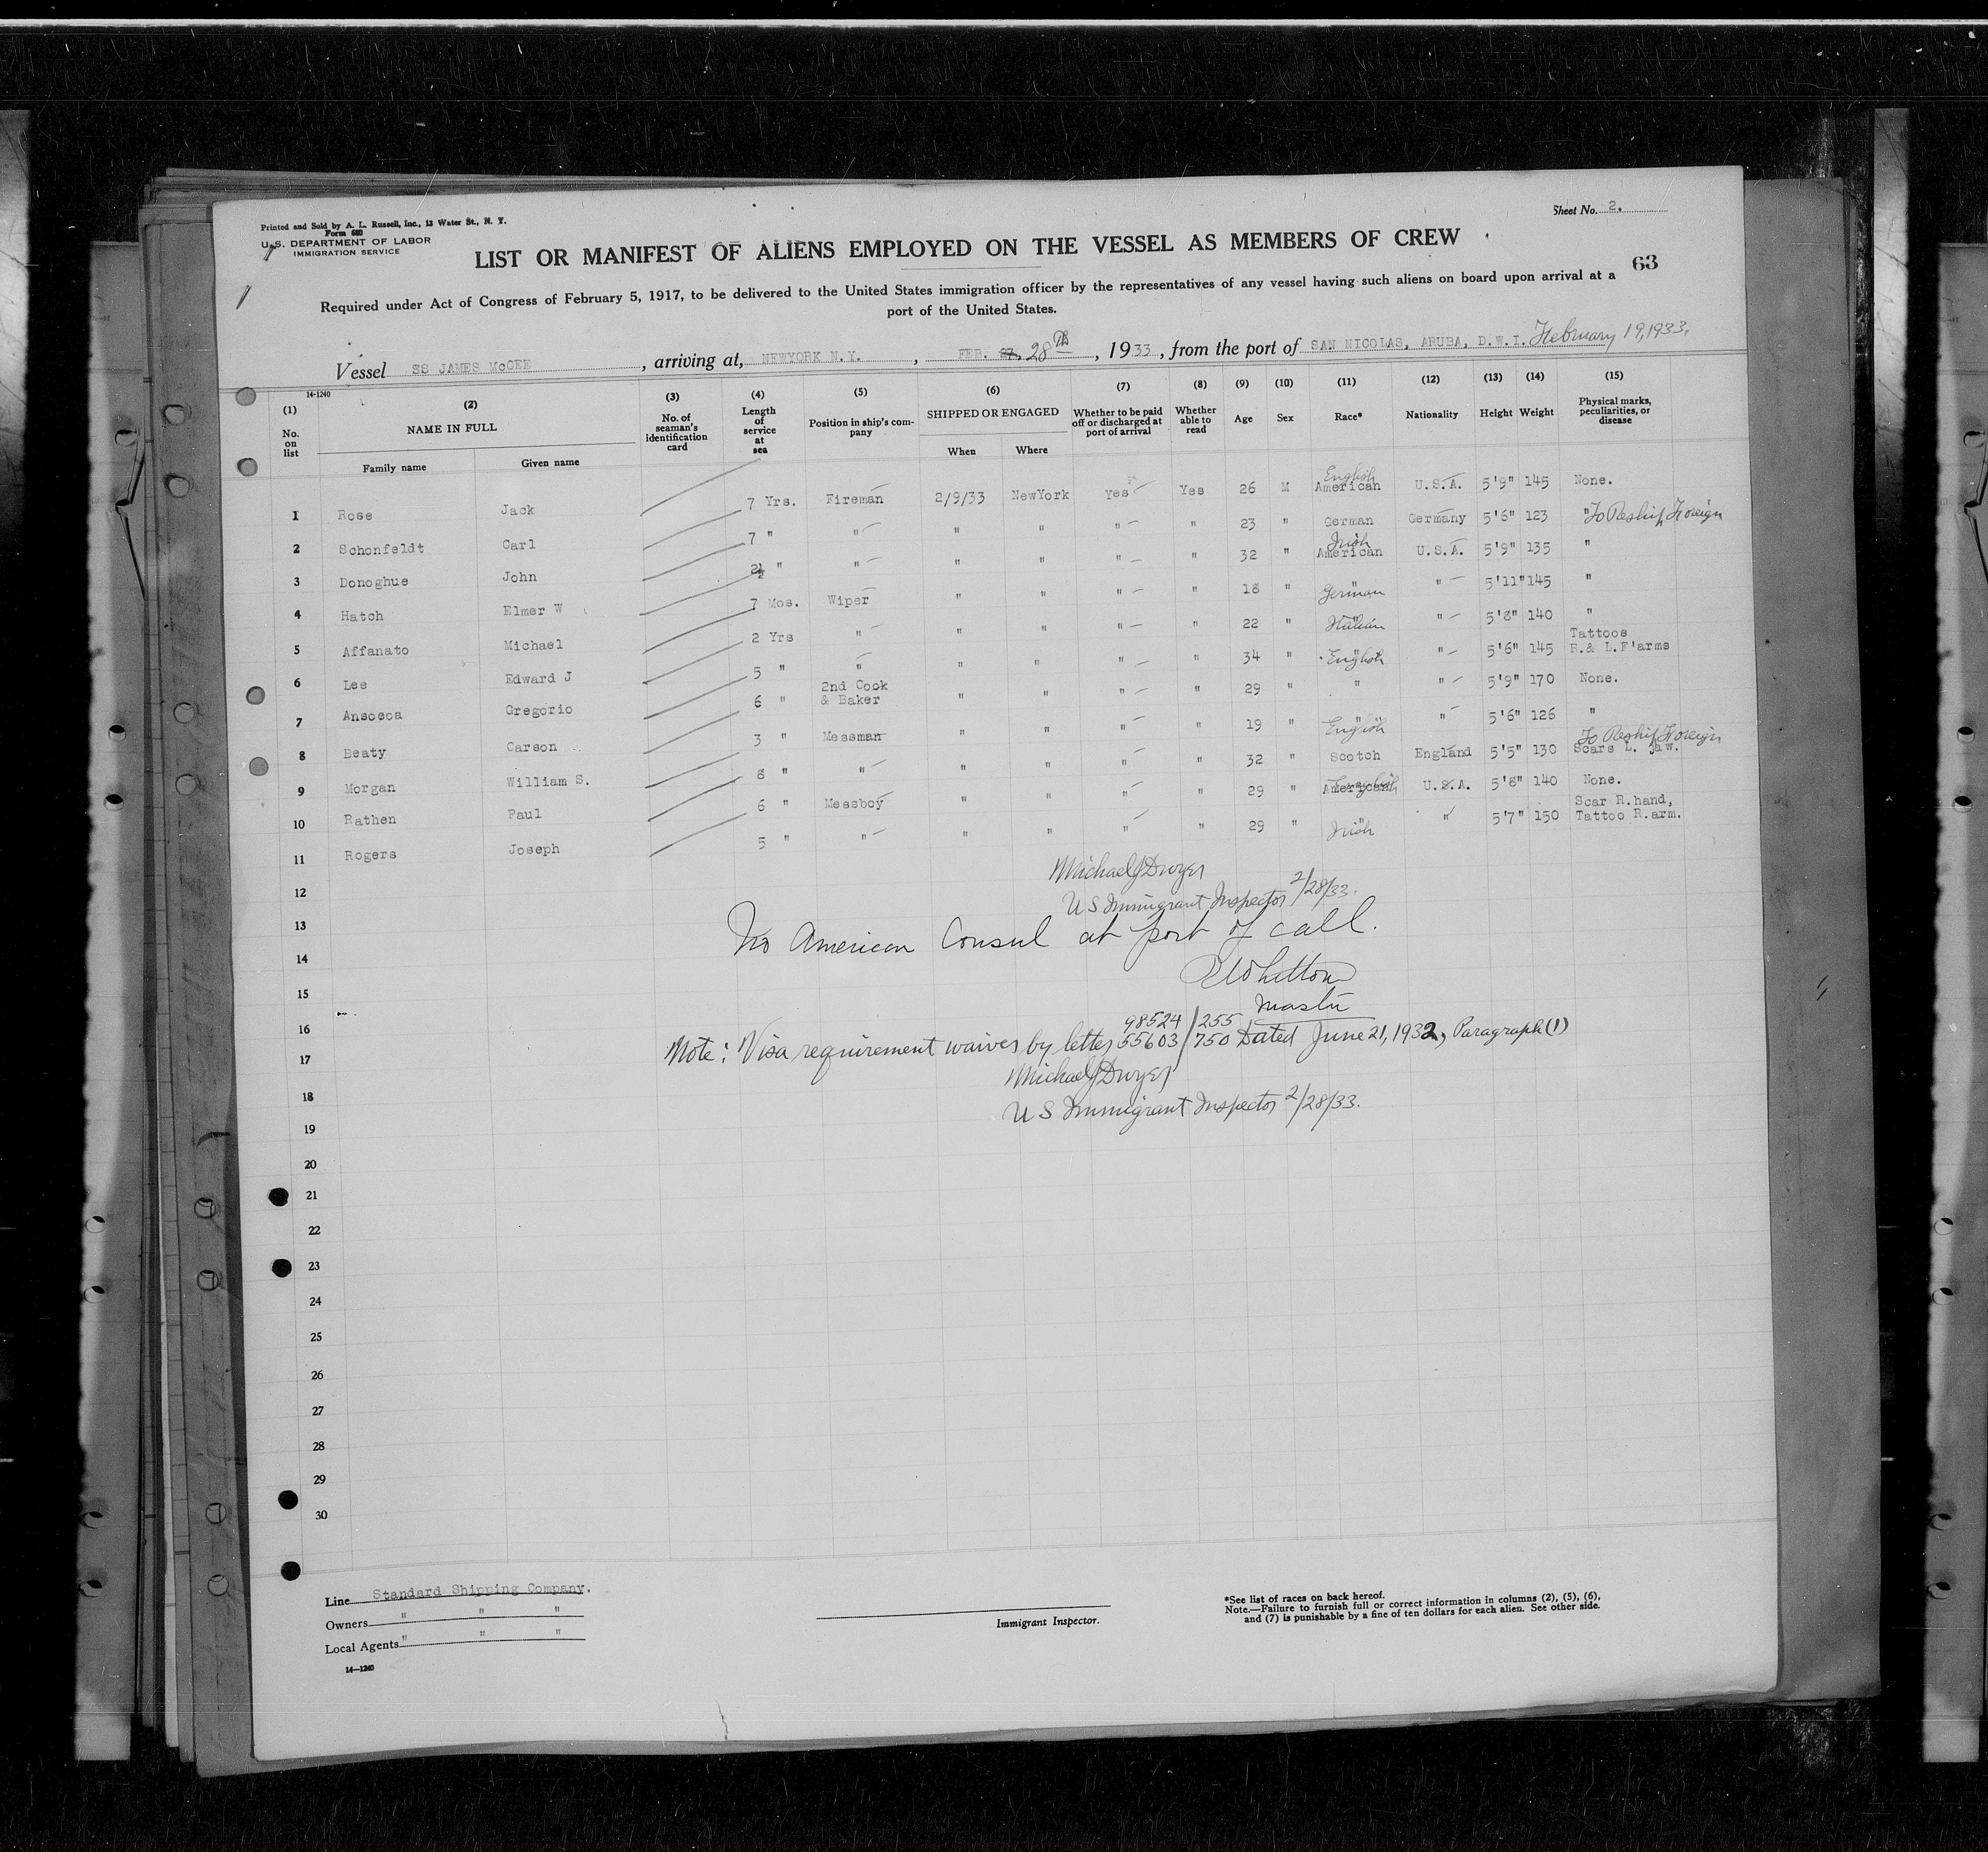 Printed and Sold by A. L. Russell, Inc., 13 Water St., N. Y.
Form 680
U.S. DEPARTMENT OF LABOR
IMMIGRATION SERVICE
Sheet No. 2.
LIST OR MANIFEST OF ALIENS EMPLOYED ON THE VESSEL AS MEMBERS OF CREW
63
Required under Act of Congress of February 5, 1917, to be delivered to the United States immigration officer by the representatives of any vessel having such aliens on board upon arrival at a
port of the United States.
Vessel SS JAMES McGEE, arriving at, NEWYORK N.Y., FEB. 28th, 1933, from the port of SAN NICOLAS, ARUBA, D.W.I. February 19, 1933.
14-1240
(1) No. on list (2) NAME IN FULL Family name Given name (3) No. of seaman's identification card (4) Length of service at sea (5) Position in ship's company (6) SHIPPED OR ENGAGED When Where (7) Whether to be paid off or discharged at port of arrival (8) Whether able to read (9) Age (10) Sex (11) Race* (12) Nationality (13) Height (14) Weight (15) Physical marks, peculiarities, or disease
1 Rose Jack 7 Yrs. Fireman 2/9/33 NewYork Yes Yes 26 M American English U.S.A. 5'9" 145 None.
2 Schonfeldt Carl 7 " " " " " " 23 " German Germany 5'6" 123 " To Reship Foreign
3 Donoghue John 2½ " " " " " " 32 " American Irish U.S.A. 5'9" 135 "
4 Hatch Elmer W 7 Mos. Wiper " " " " 18 " " German " 5'11" 145 "
5 Affanato Michael 2 Yrs " " " " " 22 " " Italian " 5'8" 140 "
6 Lee Edward J 5 " " " " " " 34 " " English " 5'6" 145 Tattoos R.& L.F'arms
7 Ansoeoa Gregorio 6 " 2nd Cook & Baker " " " " 29 " " " 5'9" 170 None.
8 Beaty Carson 3 " Messman " " " " 19 " " English " 5'6" 126 "
9 Morgan William S. 8 " " " " " " 32 " Scotch England 5'5" 130 Scars L. jaw. To Reship Foreign
10 Rathen Paul 6 " Messboy " " " " 29 " American English U.S.A. 5'8" 140 None.
11 Rogers Joseph 5 " " " " " " 29 " " Irish " 5'7" 150 Scar R.hand, Tattoo R.arm.
12
Michael J Dwyer
U S Immigrant Inspector 2/28/33.
13
No American Consul at port of call.
14
Whitton
15
Master
16
98524/255
17
Note: Visa requirement waives by letter 55603/750 Dated June 21, 1932, Paragraph (1)
Michael J Dwyer
18
U S Immigrant Inspector 2/28/33.
19
20
21
22
23
24
25
26
27
28
29
30
Line Standard Shipping Company.
Owners " " "
Local Agents " " "
14—1240
Immigrant Inspector.
*See list of races on back hereof.
Note.—Failure to furnish full or correct information in columns (2), (5), (6),
and (7) is punishable by a fine of ten dollars for each alien. See other side.